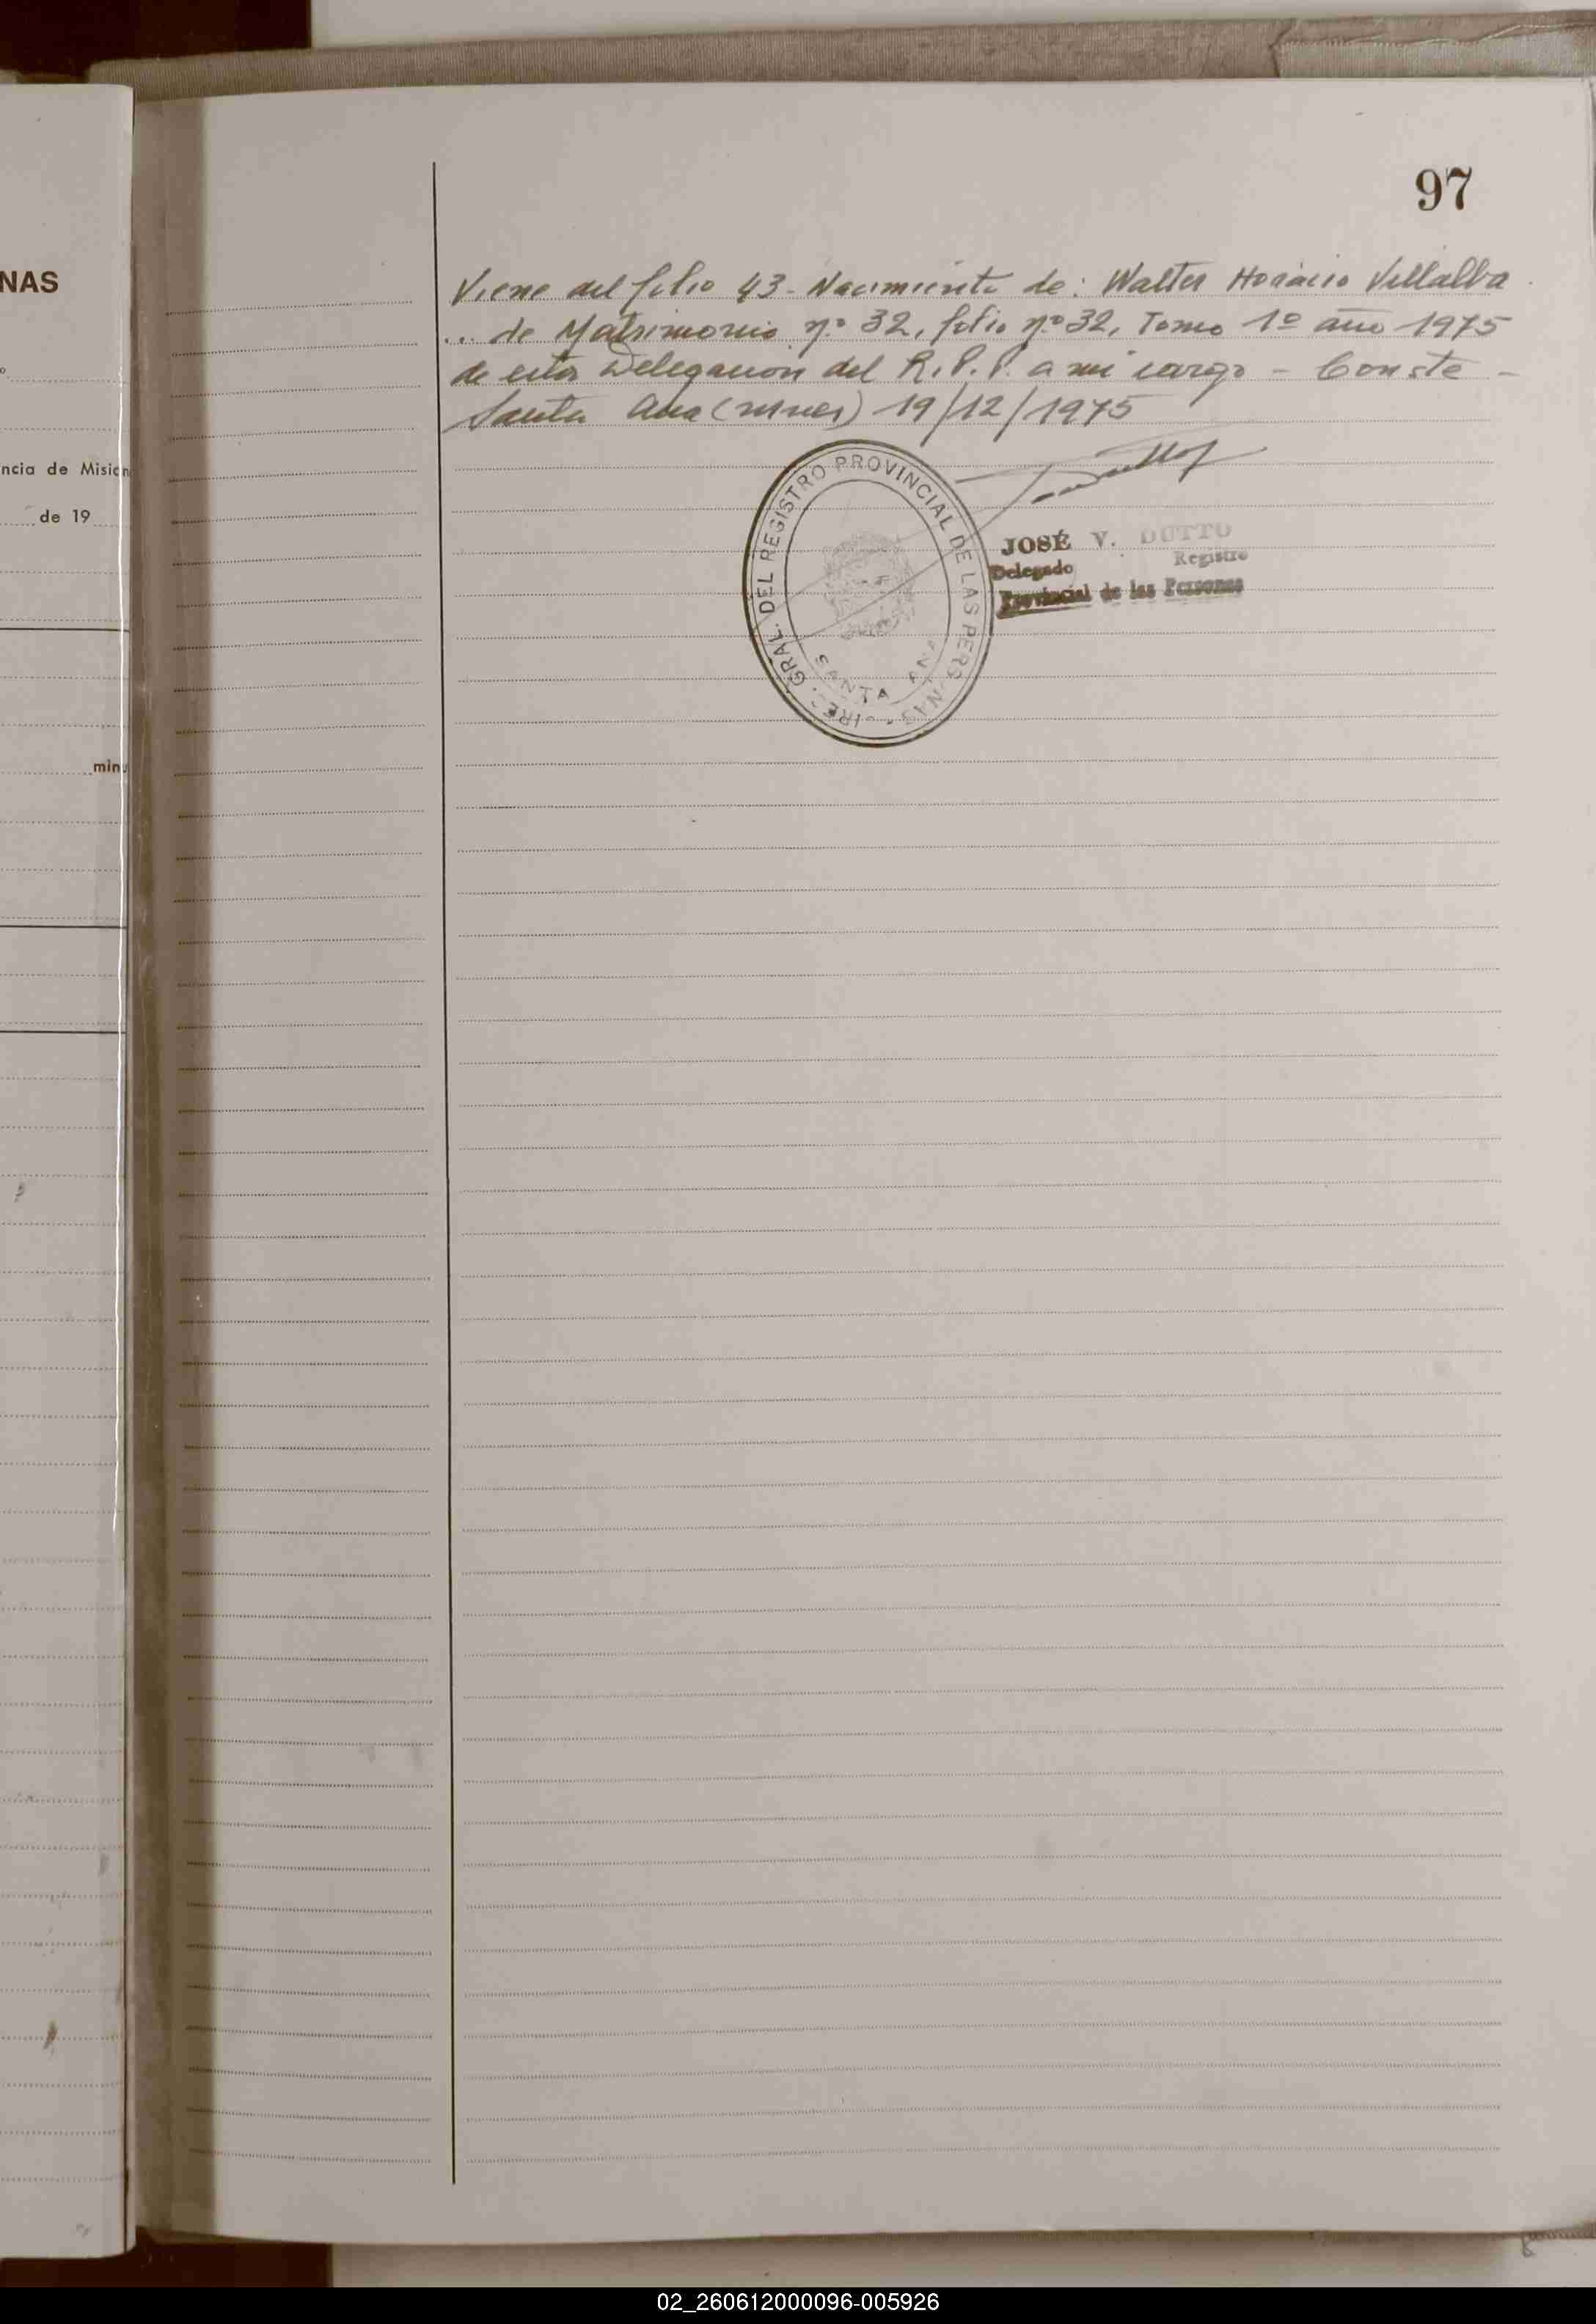 97
NAS
ncia de Mision
de 19
minu
Viene del folio 43 - Nacimiento de: Walter Horacio Villalba
... de Matrimonio nº 32, folio nº 32, Tomo 1º año 1975
de esta Delegación del R. P. P. a mi cargo - Conste -
Santa Ana (Mnes) 19/12/1975
GRAL. DEL REGISTRO PROVINCIAL DE LAS PERSONAS
SANTA ANA
JOSÉ V. DUTTO
Delegado Registro
Provincial de las Personas
02_260612000096-005926